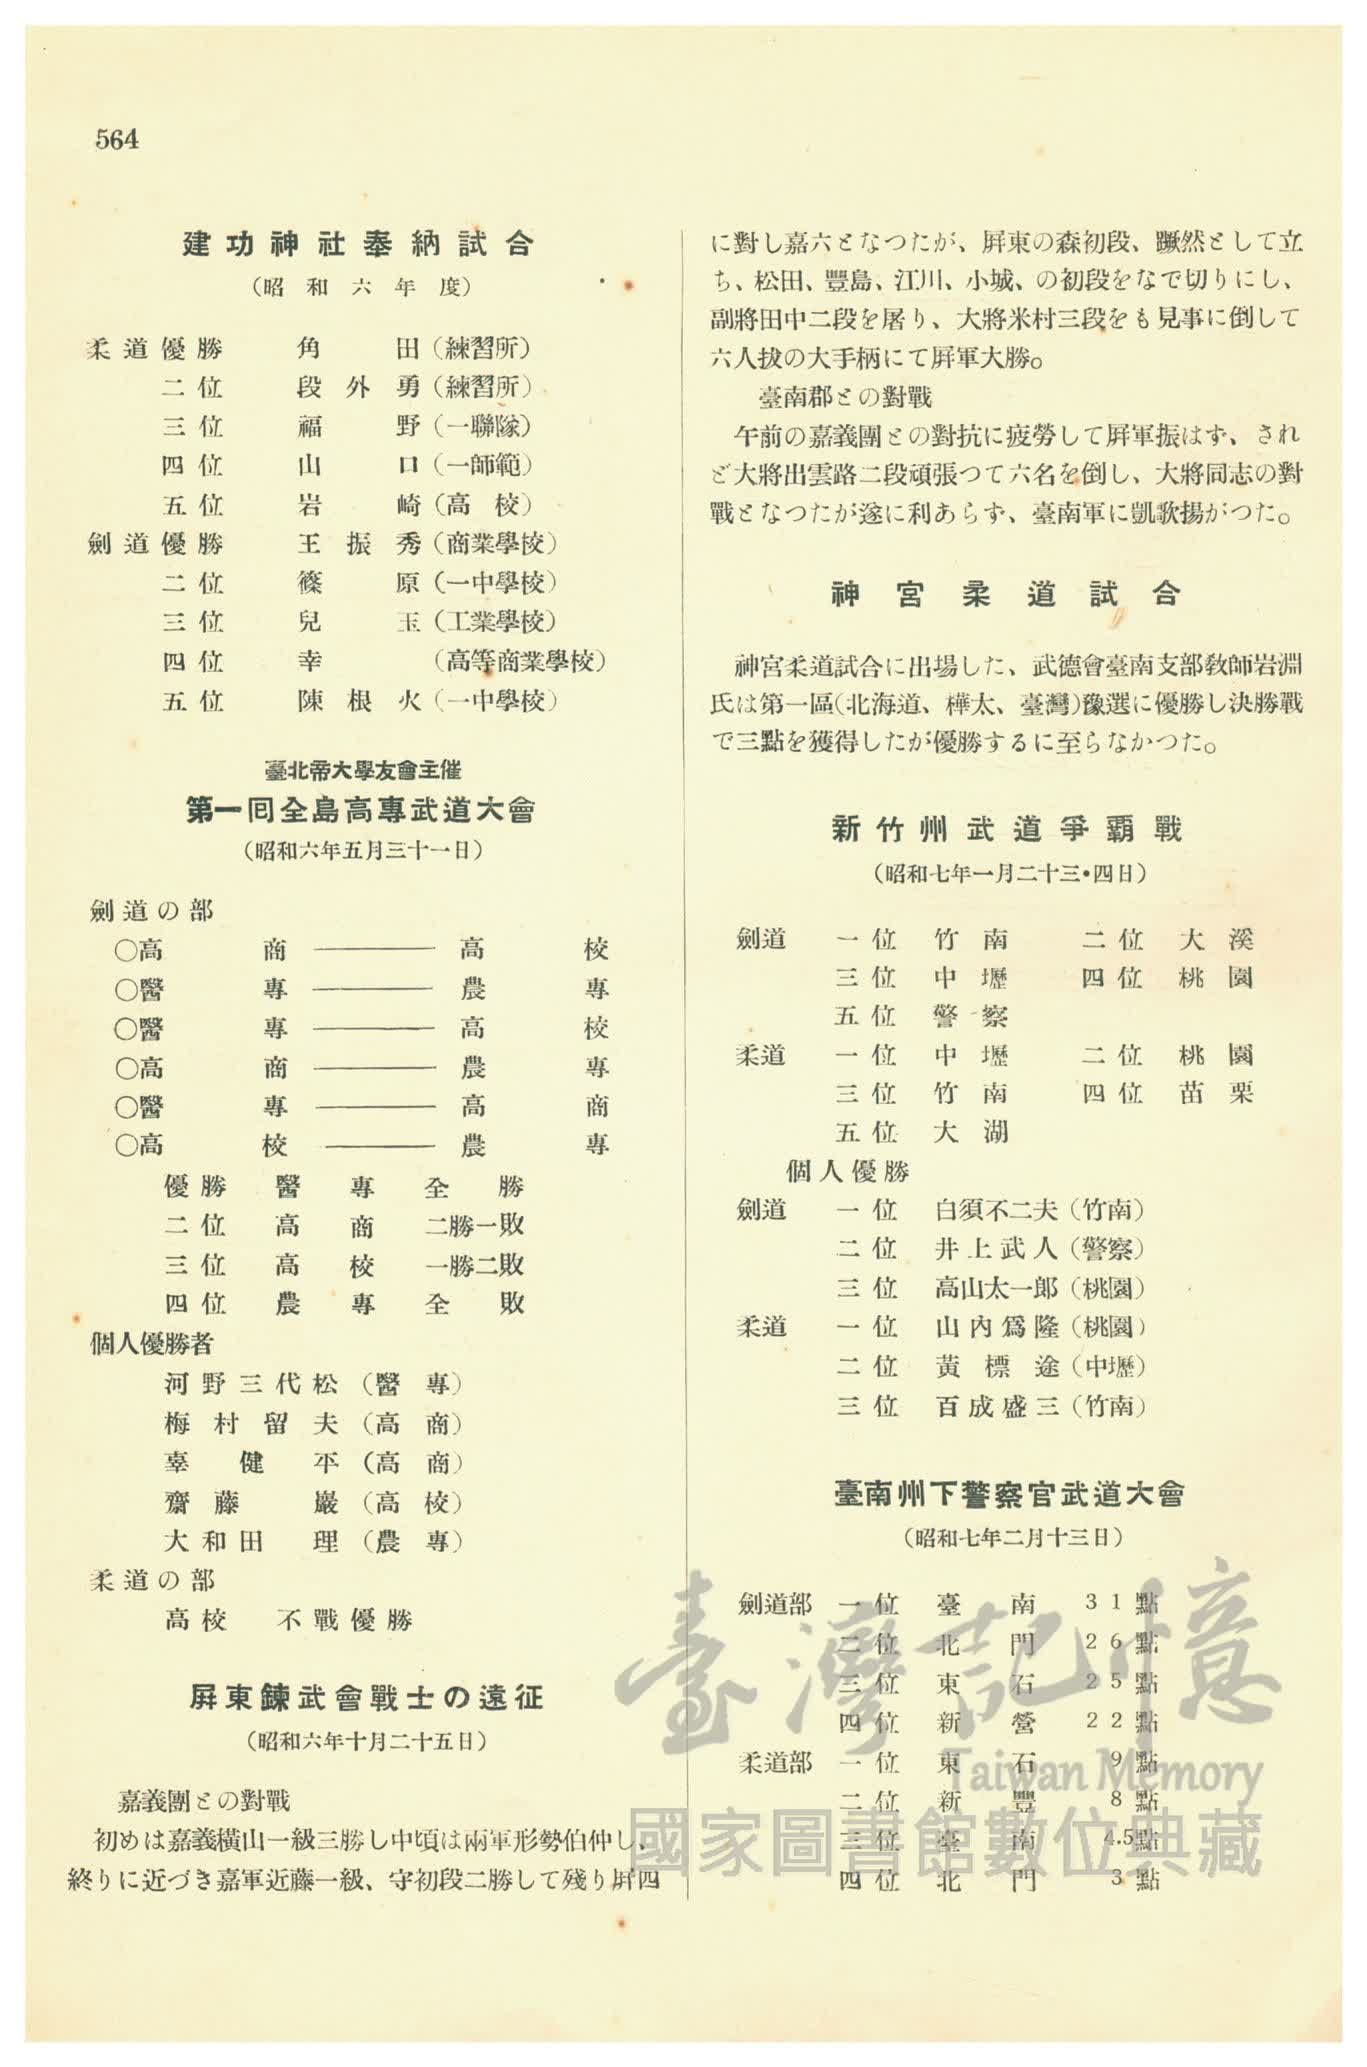 564
建功神社奉納試合
（昭和六年度）
柔道優勝 角田（練習所）
二位 段外勇（練習所）
三位 福野（一聯隊）
四位 山口（一師範）
五位 岩崎（高校）
劍道優勝 王振秀（商業學校）
二位 篠原（一中學校）
三位 兒玉（工業學校）
四位 幸（高等商業學校）
五位 陳根火（一中學校）
臺北帝大學友會主催
第一回全島高專武道大會
（昭和六年五月三十一日）
劍道の部
○高商――高校
○醫專――農專
○醫專――高校
○高商――農專
○醫專――高商
○高校――農專
優勝 醫專 全勝
二位 高商 二勝一敗
三位 高校 一勝二敗
四位 農專 全敗
個人優勝者
河野三代松（醫專）
梅村留夫（高商）
辜健平（高商）
齋藤巖（高校）
大和田理（農專）
柔道の部
高校 不戰優勝
屏東鍊武會戰士の遠征
（昭和六年十月二十五日）
嘉義團との對戰
初めは嘉義橫山一級三勝し中頃は兩軍形勢伯仲し、
終りに近づき嘉軍近藤一級、守初段二勝して殘り屏四
に對し嘉六となつたが、屏東の森初段、蹶然として立
ち、松田、豐島、江川、小城、の初段をなで切りにし、
副將田中二段を屠り、大將米村三段をも見事に倒して
六人拔の大手柄にて屏軍大勝。
臺南郡との對戰
午前の嘉義團との對抗に疲勞して屏軍振はず、され
ど大將出雲路二段頑張つて六名を倒し、大將同志の對
戰となつたが遂に利あらず、臺南軍に凱歌揚がつた。
神宮柔道試合
神宮柔道試合に出場した、武德會臺南支部敎師岩淵
氏は第一區（北海道、樺太、臺灣）豫選に優勝し決勝戰
で三點を獲得したが優勝するに至らなかつた。
新竹州武道爭霸戰
（昭和七年一月二十三・四日）
劍道 一位 竹南 二位 大溪
三位 中壢 四位 桃園
五位 警察
柔道 一位 中壢 二位 桃園
三位 竹南 四位 苗栗
五位 大湖
個人優勝
劍道 一位 白須不二夫（竹南）
二位 井上武人（警察）
三位 高山太一郎（桃園）
柔道 一位 山內爲隆（桃園）
二位 黃標途（中壢）
三位 百成盛三（竹南）
臺南州下警察官武道大會
（昭和七年二月十三日）
劍道部 一位 臺南 31點
二位 北門 26點
三位 東石 25點
四位 新營 22點
柔道部 一位 東石 9點
二位 新豐 8點
三位 臺南 4.5點
四位 北門 3點
臺灣記憶
Taiwan Memory
國家圖書館數位典藏